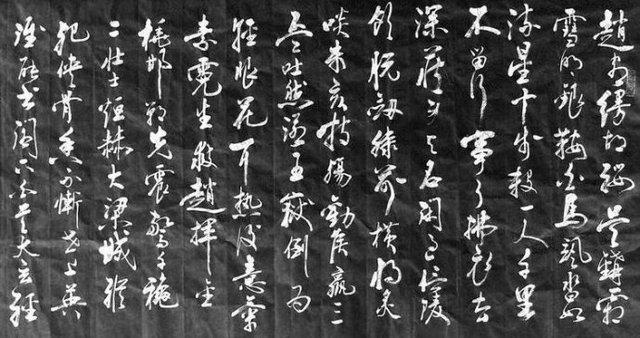 趙客縵胡纓吳鉤霜
雪明銀鞍白馬颯沓如
流星十步殺一人千里
不留行事了拂衣去
深藏身與名閑過信陵
飲脫劍膝前橫將炙
啖朱亥持觴勸侯嬴三
杯吐然諾五嶽倒為
輕眼花耳熱後意氣
素霓生救趙揮金
槌邯鄲先震驚千秋
二壯士烜赫大梁城縱
死俠骨香不慚世上英
誰能書閣下白首太玄經